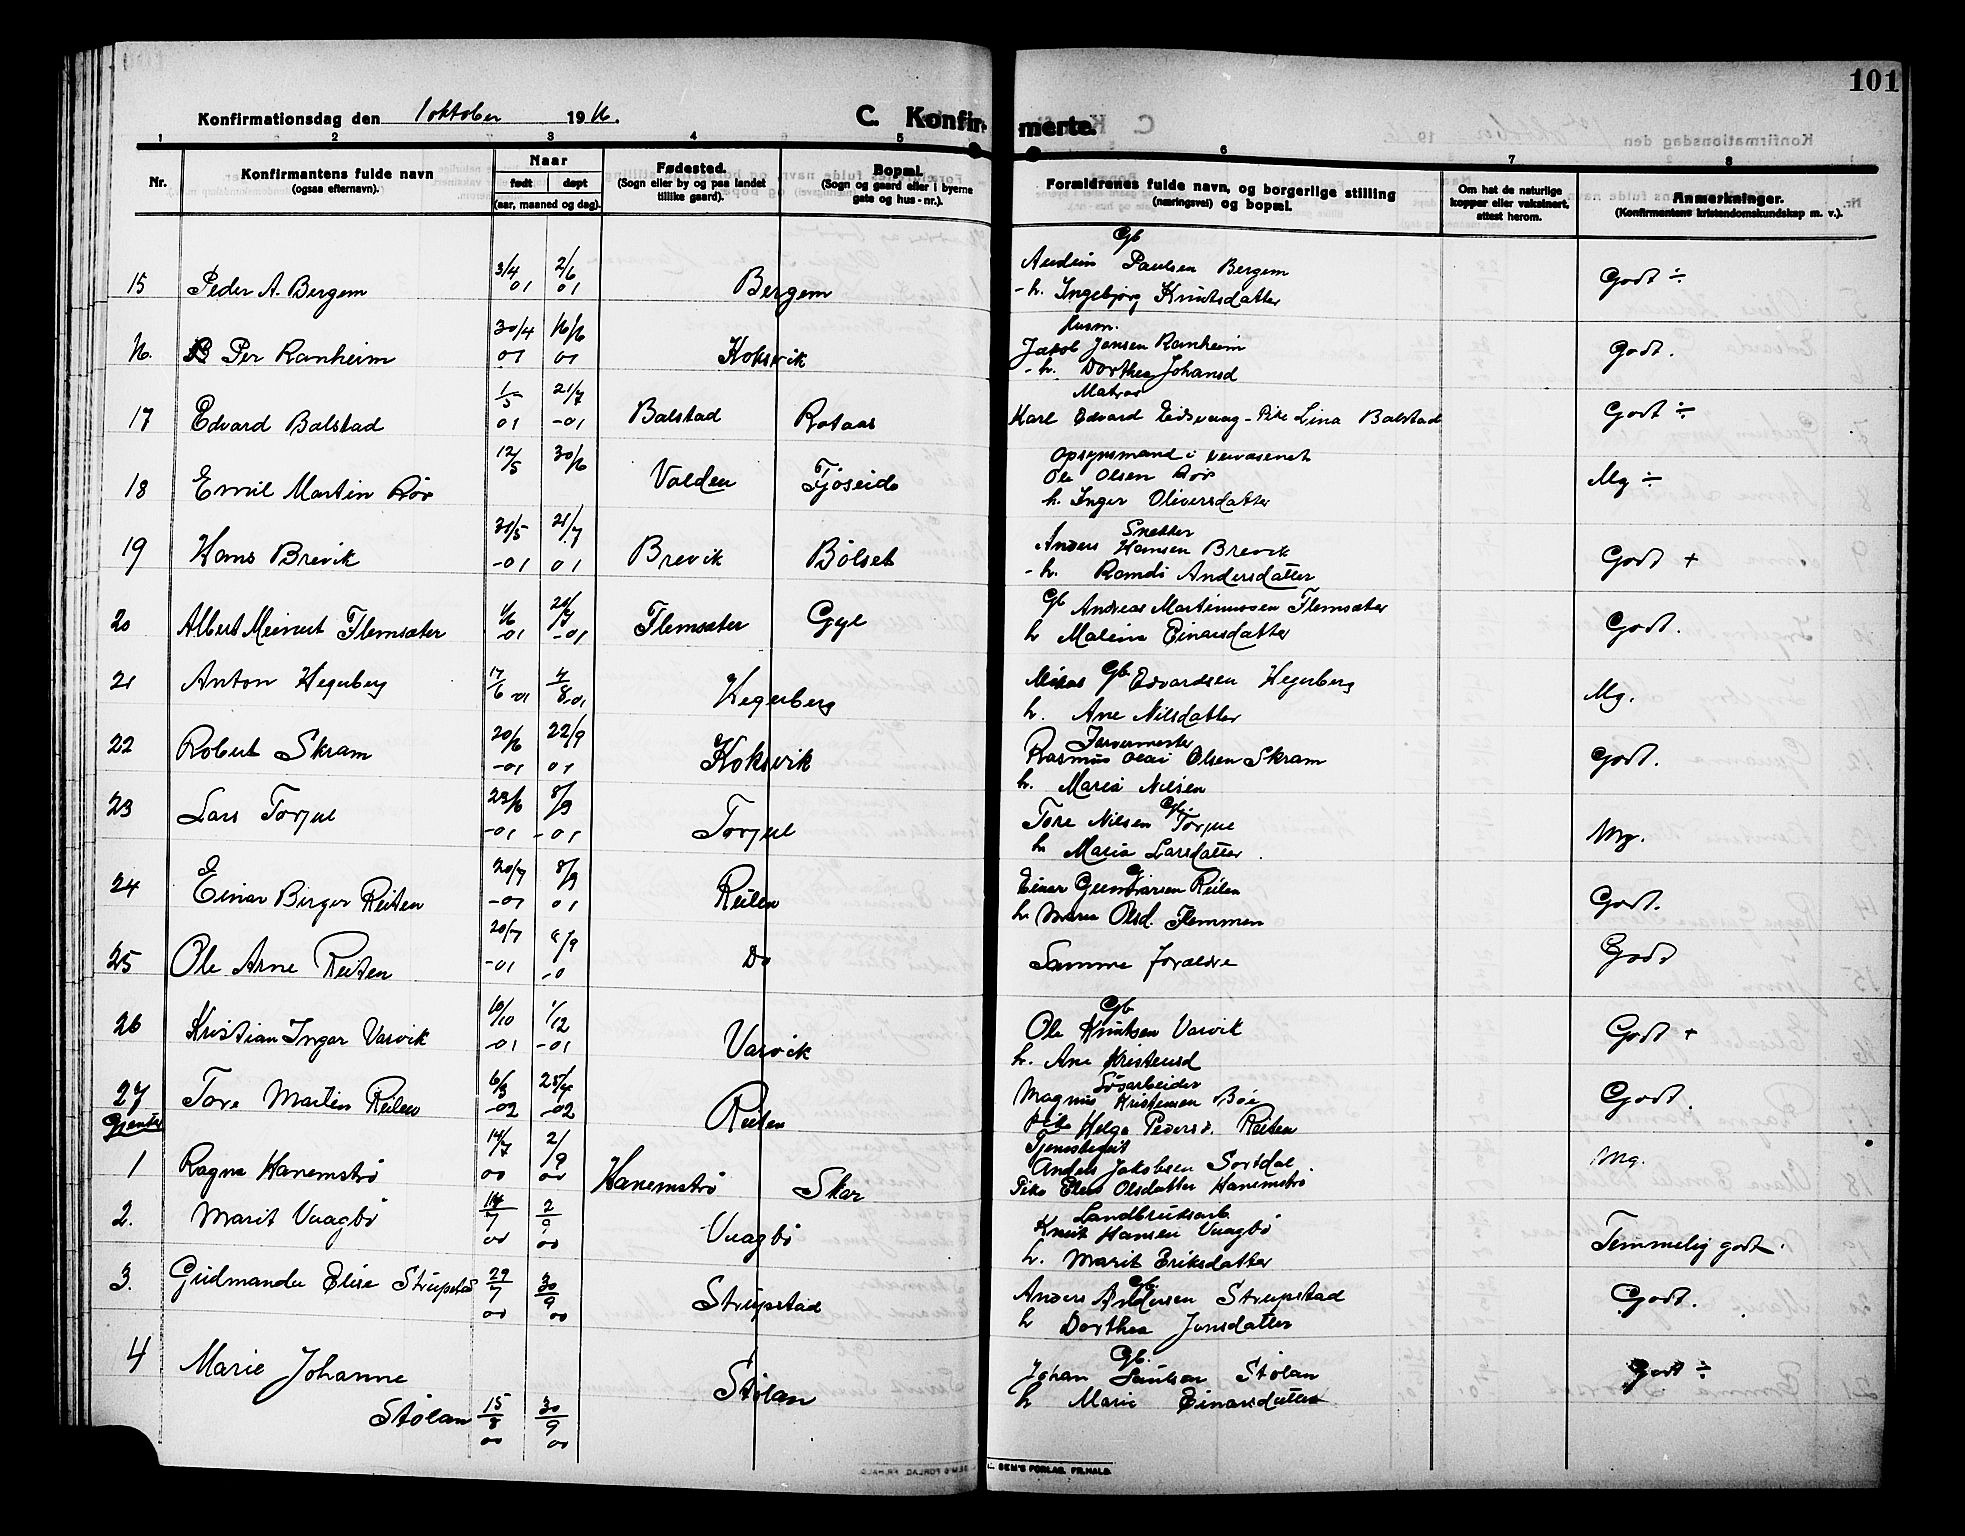 101
Konfirmationsdag den 1 oktober 1916.
C. Konfirmerte.
1 2 3 4 5 6 7 8
Nr.
Konfirmantens fulde navn
(ogsaa efternavn).
Naar
født døpt
(aar, maaned og dag).
Fødested.
(Sogn eller by og paa landet
tillike gaard).
Bopæl.
(Sogn og gaard eller i byerne
gate og hus-nr.).
Forældrenes fulde navn, og borgerlige stilling
(næringsvei) og bopæl.
Om hat de naturlige
kopper eller vaksinert,
attest herom.
Anmerkninger.
(Konfirmantens kristendomskundskap m. v.).
Gb
15 Peder A. Bergem 3/4 01 2/6 01 Bergem Paulsen Bergem Godt ÷
h. Ingebjørg Knutsdatter
Husm.
16. Per Ranheim 30/4 01 16/6 01 Koksvik Jakob Jensen Ranheim Godt.
h. Dorthea Johansd
Matros
17 Edvard Balstad 1/5 01 21/7 -01 Balstad Rotaas Karl Edvard Eidsvaag - Pike Lina Balstad Godt ÷
Opsynsmand i veivæsenet
18 Emil Martin Rør 12/5 30/6 Valden Tjøseide Ole Olsen Rør Mg ÷
h. Inger Oliversdatter
Snekker
19 Hans Brevik 31/5 -01 21/7 01 Brevik Bølset Anders Hansen Brevik Godt +
h. Randi Andersdatter
20 Albert Meinert Flemsæter 1/6 -01 21/7 -01 Flemsæter Gyl Gb Andreas Martinussen Flemsæter Godt.
h Malene Einarsdatter
21 Anton Hegerberg 17/6 01 4/8 01 Hegerberg Gb Edvardsen Hegerberg Mg.
h. Ane Nilsdatter
Farvermester
22 Robert Skram 20/6 -01 22/9 01 Koksvik Rasmus Olai Olsen Skram Godt.
h. Maria Nilsen
Gb.
23 Lars Torjul 23/6 -01 8/9 -01 Torjul Tore Nilsen Torjul Mg.
h Maria Larsdatter.
24 Einar Birger Reiten 20/7 -01 8/9 01 Reiten Einar Gunnarsen Reiten Godt.
h Maria Olsd. Flemmen
25 Ole Arne Reiten 20/7 -01 8/9 -0 Do Samme forældre Godt
Gb.
26 Kristian Ingar Varvik 10/10 -01 1/12 -01 Varvik Ole Knutsen Varvik Godt +
h. Ane Kristensd
Sjøarbeider
27 Tore Martin Reiten 6/3 -02 25/4 -02 Reiten Magnus Kristensen Bøe Godt.
Pike Helga Pedersd. Reiten
Gjenter
Tjenestegut
1 Ragna Hanemstrø 14/7 00 2/9 00 Hanemstrø Skar Anders Jakobsen Sordal Mg.
Pike Elen Olsdatter Hanemstrø
Landbruksarb.
2. Marit Vaagbø 14/7 00 2/9 00 Vaagbø Knut Hansen Vaagbø Temmelig godt.
h. Marit Eriksdatter
Gb.
3. Gudmunda Elise Strupstad 29/7 00 30/9 00 Strupstad Anders Andersen Strupstad Godt.
h Dorthea Jonsdatter
Gb.
4 Marie Johanne Stølan 15/8 00 30/9 00 Stølan Johan Stølan Godt ÷
h Marie Einarsdatter
SEM'S FORLAG, FR.HALD.